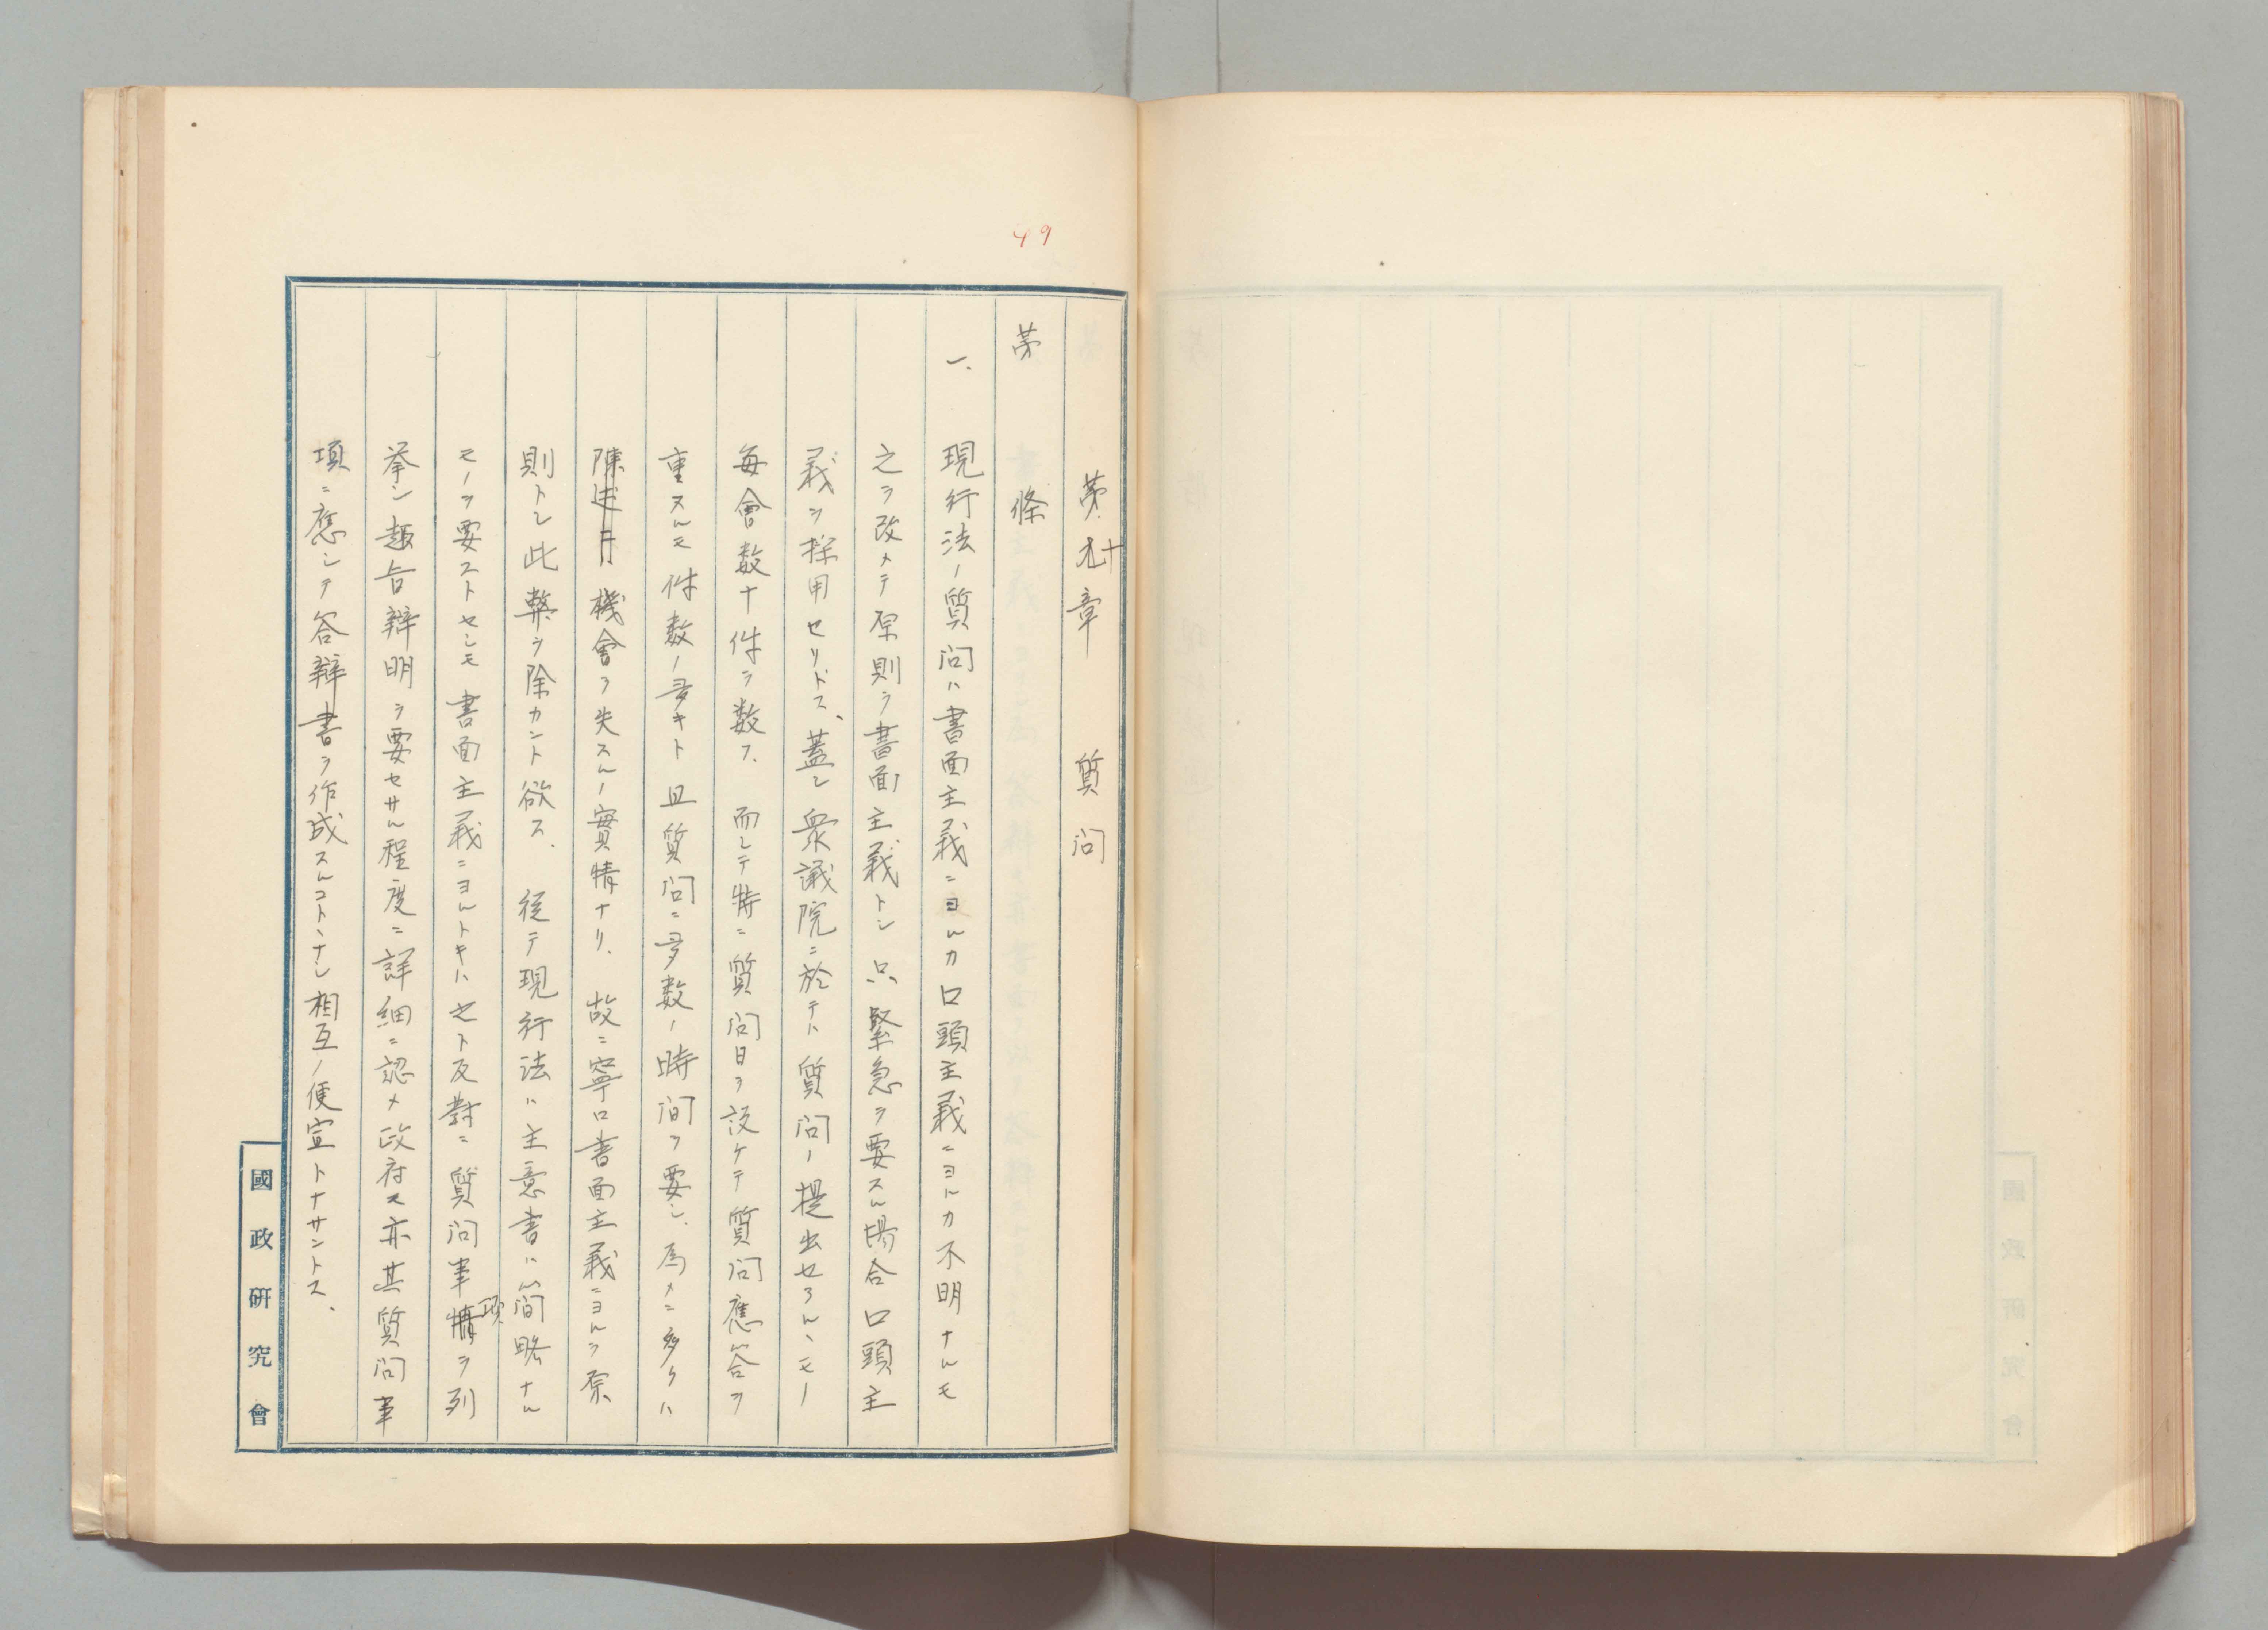 49
第十章　質問
第　條
一、現行法ノ質問ハ書面主義ニヨルカ口頭主義ニヨルカ不明ナルモ
之ヲ改メテ原則ヲ書面主義トシ只緊急ヲ要スル場合口頭主
義ヲ採用セリトス、蓋シ衆議院ニ於テハ質問ノ提出セラルヽモノ
毎會数十件ヲ数フ、而シテ特ニ質問日ヲ設ケテ質問應答ヲ
重スルモ件数ノ多キト且質問ニ多数ノ時間ヲ要シ、為メニ多クハ
陳述ノ機會ヲ失スルノ實情ナリ、故ニ寧ロ書面主義ニヨルヲ原
則トシ此弊ヲ除カント欲ス、従テ現行法ハ主意書ハ簡略ナル
モノヲ要ストセシモ書面主義ニヨルトキハ之ト反對ニ質問事項ヲ列
挙シ趣旨辯明ヲ要セサル程度ニ詳細ニ認メ政府モ亦其質問事
項ニ應シテ答辯書ヲ作成スルコトヽナシ相互ノ便宜トナサントス、
國政研究會